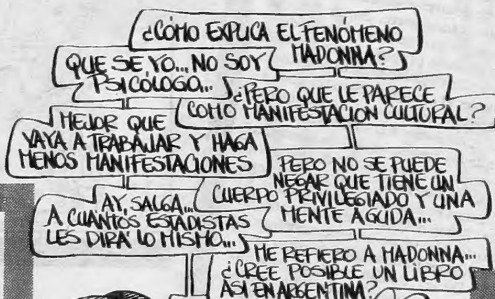 ¿CÓMO EXPLICA EL FENÓMENO
MADONNA?
QUE SE YO... NO SOY
PSICÓLOGO...
¿PERO QUE LE PARECE
COMO MANIFESTACION CULTURAL?
MEJOR QUE
VAYA A TRABAJAR Y HAGA
MENOS MANIFESTACIONES
PERO NO SE PUEDE
NEGAR QUE TIENE UN
CUERPO PRIVILEGIADO Y UNA
MENTE AGUDA...
AY, SALGA...
A CUANTOS ESTADISTAS
LES DIRÁ LO MISMO...
ME REFIERO A MADONNA...
¿CREE POSIBLE UN LIBRO
ASI EN ARGENTINA?